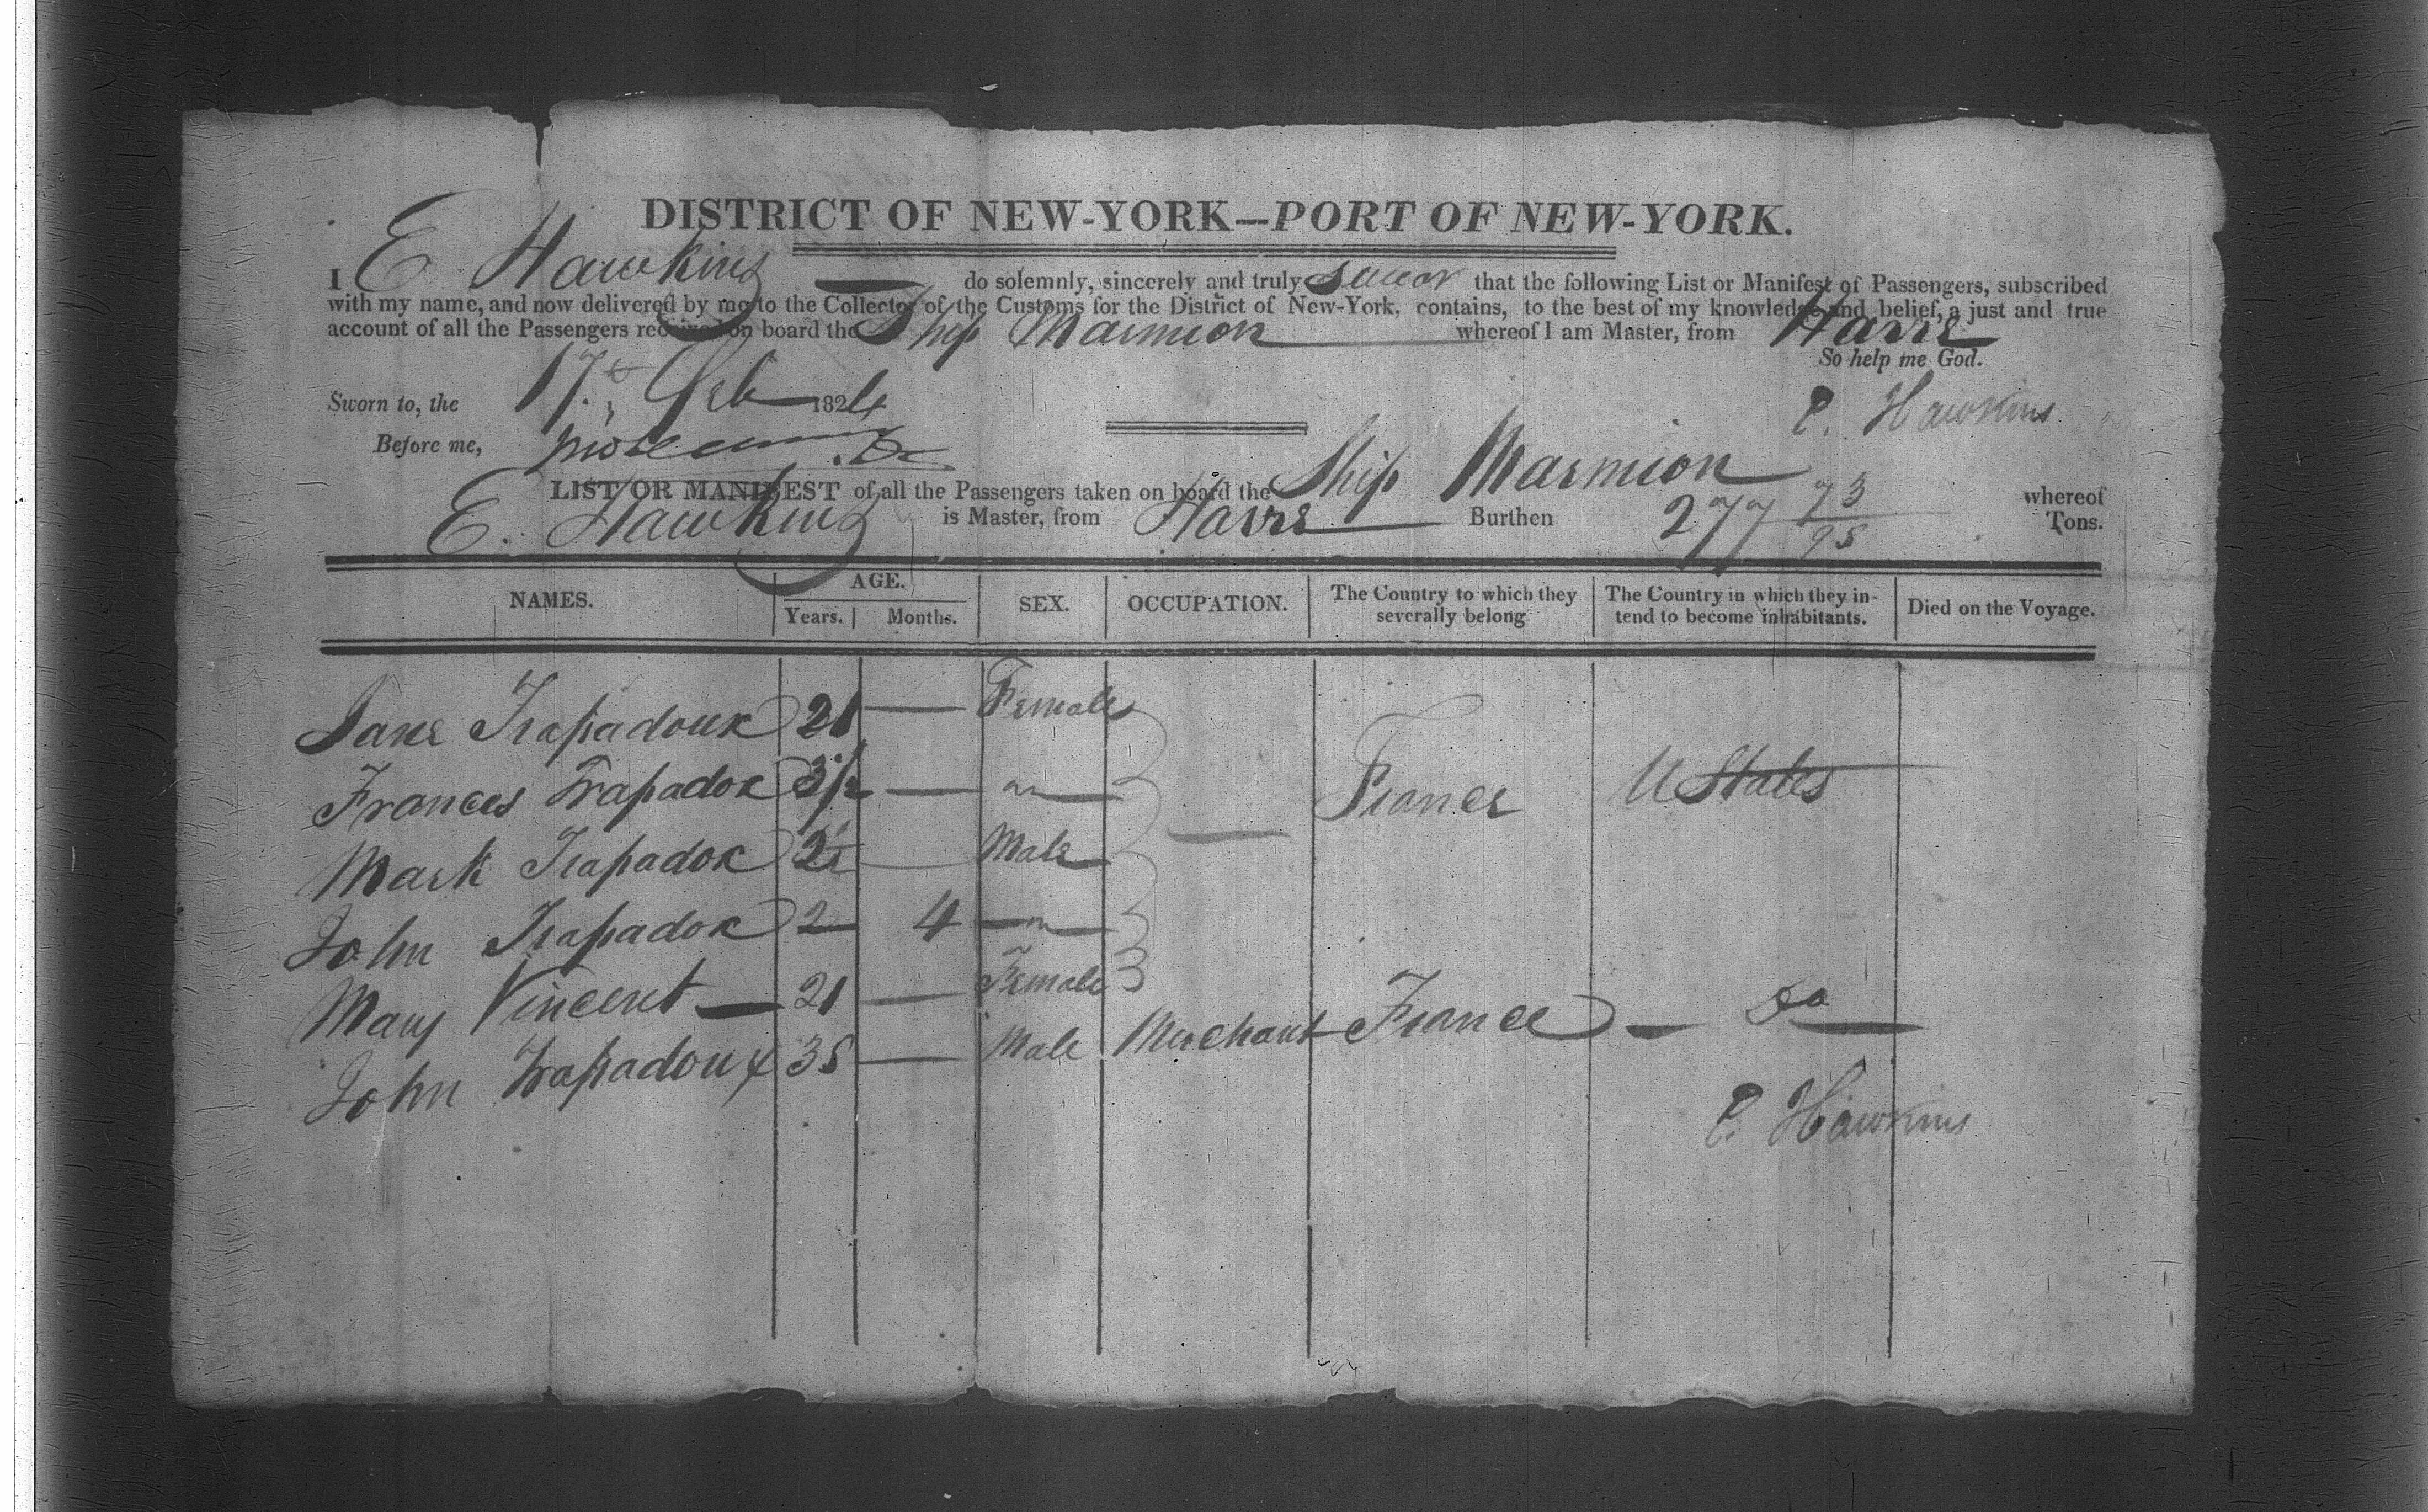 DISTRICT OF NEW-YORK—PORT OF NEW-YORK.
I E Hawkins — do solemnly, sincerely and truly swear that the following List or Manifest of Passengers, subscribed
with my name, and now delivered by me to the Collector of the Customs for the District of New-York, contains, to the best of my knowledge and belief, a just and true
account of all the Passengers received on board the Ship Marmion whereof I am Master, from Havre
So help me God.
Sworn to, the 17th Feb 1824
E. Hawkins
Before me,
LIST OR MANIFEST of all the Passengers taken on board the Ship Marmion whereof
E. Hawkins is Master, from Havre Burthen 277 73/95 Tons.
NAMES. AGE. Years. Months. SEX. OCCUPATION. The Country to which they severally belong The Country in which they intend to become inhabitants. Died on the Voyage.
Jane Trapadoux 21 — Female
Frances Trapadox 3½ — " — France U States
Mark Trapadox 2½ — Male —
John Trapadox 2 4 — " —
Mary Vincent — 21 — Female
John Trapadoux 35 — Male Merchant France — do —
E. Hawkins